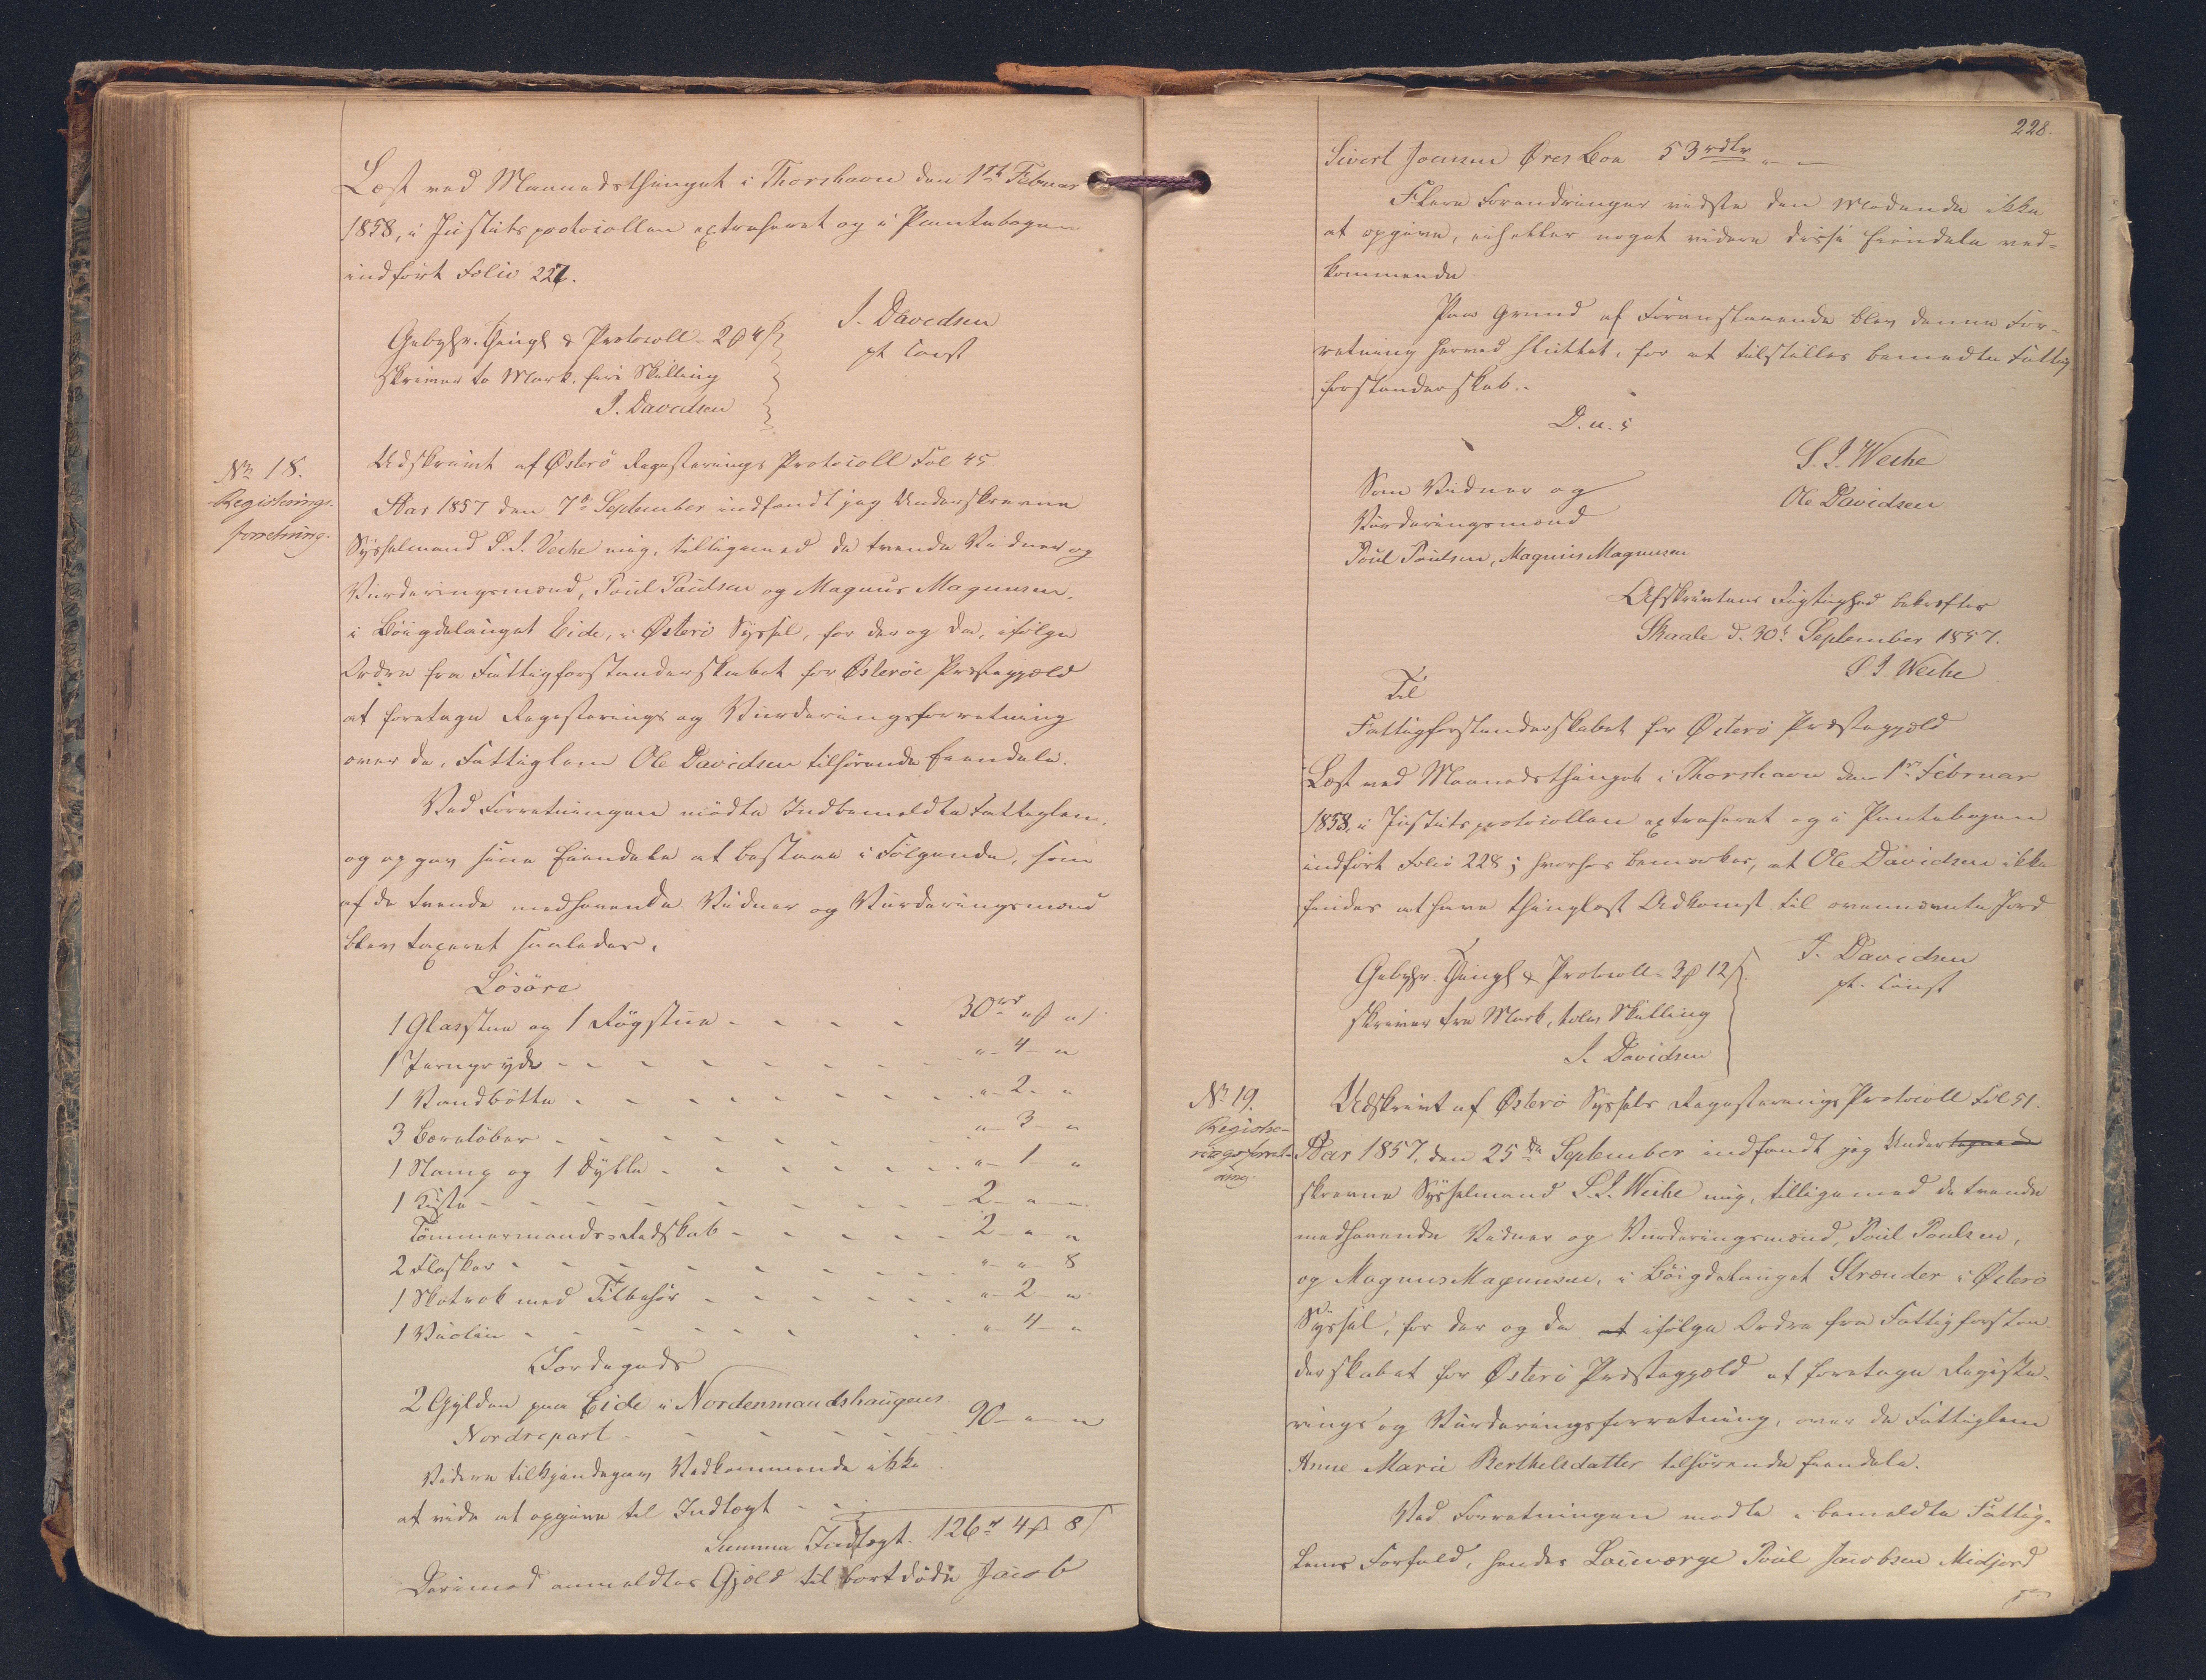 Læst ved Maanedsthinget i Thorshavn den 1ste Februar
1858, i Justitsprotocollen extraheret og i Pantebogen
indført Folio 227.
Gebyhr. Thingl & Protocoll - 2 ℔ 4 ß
skriver to Mark, fire Skilling
J. Davidsen
J. Davidsen
pt const
No 18.
Registerings-
forretning.
Udskrivt af Østerø Registerings Protocoll Fol 45.
Aar 1857 den 7de September indfandt jeg Underskrevne
Sysselmand S. J. Weihe mig, tilligemed de tvende Vidner og
Vurderingsmænd, Poul Poulsen og Magnus Magnusen,
i Bøigdelauget Eide, i Østerø Syssel, for der og da, ifølge
Ordre fra Fattigforstanderskabet for Østerøe Præstegjæld
at foretage Registerings og Vurderingsforretning
over de, Fattiglem Ole Davidsen tilhørende Eiendele.
Ved Forretningen mødte Indbemeldte Fattiglem,
og opgav sine Eiendele at bestaae i Følgende, som
af de tvende medhavende Vidner og Vurderingsmænd
blev taxeret saaledes.
Løsøre
1 Glasstue og 1 Røgstue - - - - 30 rd " ℔ " ß
1 Jerngryde - - - - " - 4 - "
1 Vandbøtte - - - - " - 2 - "
3 Bæreløber - - - - " - 3 - "
1 Stamp og 1 Dylle - - - - " - 1 - "
1 Kiste - - - - 2 - " - "
Tømmermands-Redskab - - - - 2 - " - "
2 Flasker - - - - " - " - 8
1 Skotrok med Tilbehør - - - - " - 2 - "
1 Violin - - - - " - 4 - "
Jordegods
2 Gylden paa Eide i Nordenmandshaugens
Nordrepart - - - - 90 - " - "
Videre tilkjendegav Vedkommende ikke
at vide at opgive til Indtægt - -
Summa Indtægt. 126 rd 4 ℔ 8 ß
Derimod anmeldtes Gjæld til bortdøde Jacob
228.
Sivert Joensen Øres Boe 53 rdlr " - "
Flere Forandringer vidste den Mødende ikke
at opgive, eiheller noget videre disse Eiendele ved-
kommende.
Paa Grund af Foranstaaende blev denne For-
retning herved sluttet, for at tilstilles bemeldte Fattig
forstanderskab..
D. u. s
S. J. Weihe
Ole Davidsen
Som Vidner og
Vurderingsmænd
Poul Poulsen, Magnus Magnusen
Afskrivtens Rigtighed bekræftes
Skaale d. 30te September 1857.
S. J. Weihe
Til
Fattigforstanderskabet for Østerø Præstegjæld
Læst ved Maanedsthinget i Thorshavn den 1ste Februar
1858, i Justitsprotocollen extraheret og i Pantebogen
indført Folio 228; hvorhos bemærkes, at Ole Davidsen ikke
findes at have thinglæst Adkomst til ovennævnte Jord
Gebyhr. Thingl & Protocoll - 3 ℔ 12 ß.
skriver tre Mark, tolv Skilling
J. Davidsen
J. Davidsen
pt. const
No 19.
Registe-
ringsforret-
ning.
Udskrivt af Østerø Syssels Registerings Protocoll Fol 51.
Aar 1857, den 25de September indfandt jeg Undertegnede
skrevne Sysselmand S. J. Weihe mig, tilligemed de tvende
medhavende Vidner og Vurderingsmænd, Poul Poulsen,
og Magnus Magnusen, i Bøigdelauget Strænder i Østerø
Syssel, for der og da at ifølge Ordre fra Fattigforstan-
derskabet for Østerø Præstegjæld at foretage Registe-
rings og Vurderingsforretning, over de Fattiglem
Anne Marie Berthelsdatter tilhørende Eiendele.
Ved Forretningen mødte i bemeldte Fattig-
lems Forfald, hendes Laugværge Poul Jacobsen Midjord